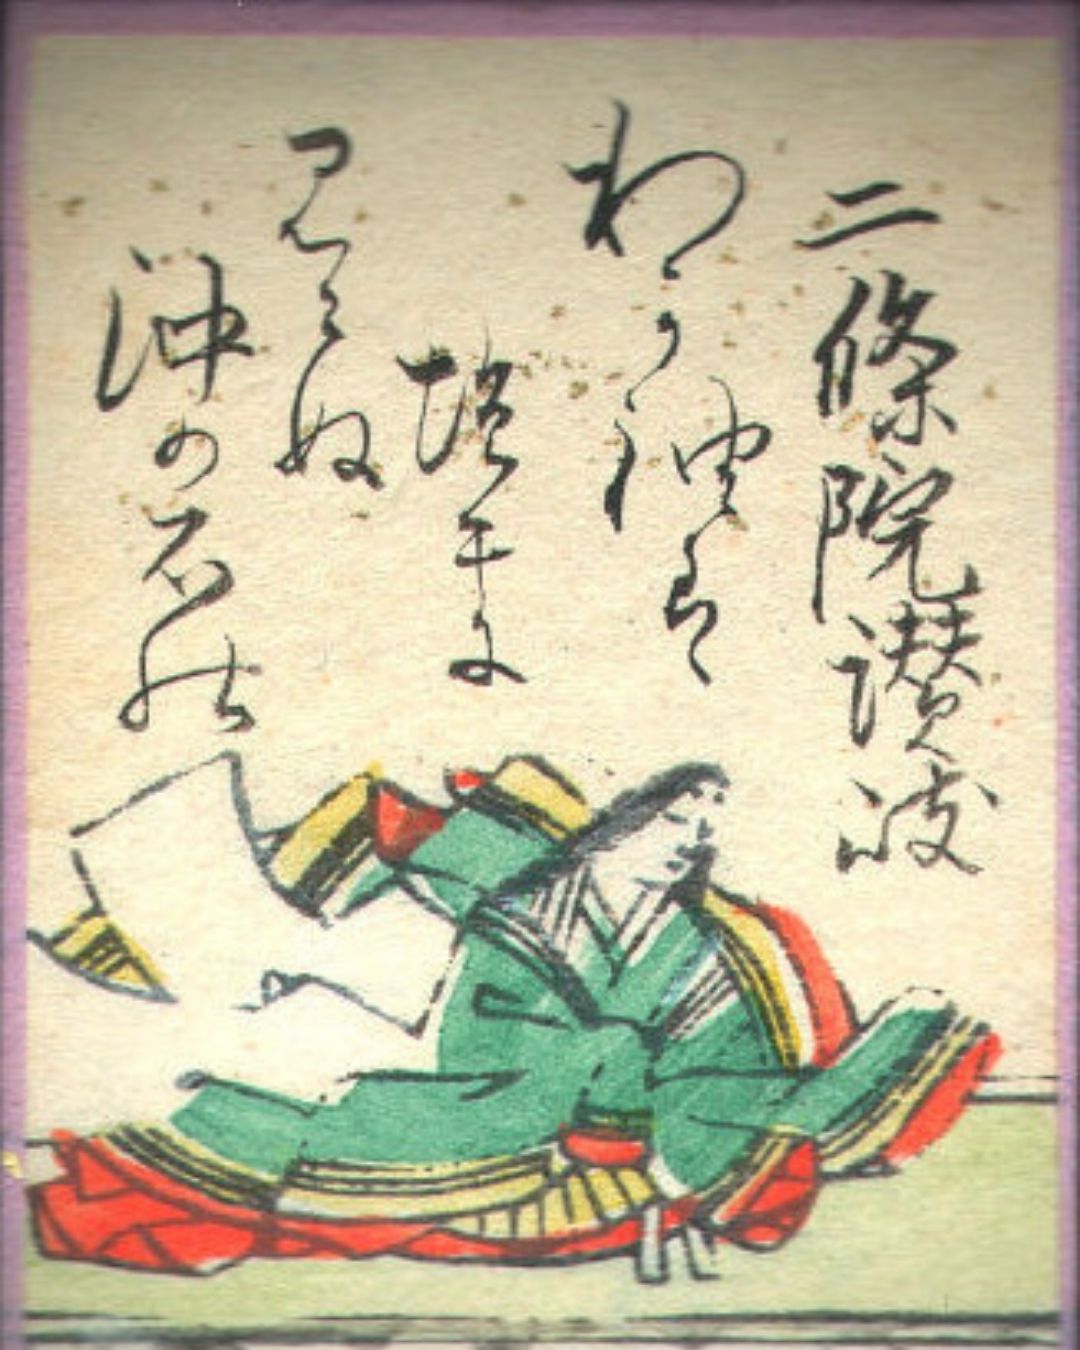 二條院讃岐
わか袖は
塩干に
見えぬ
沖の石の